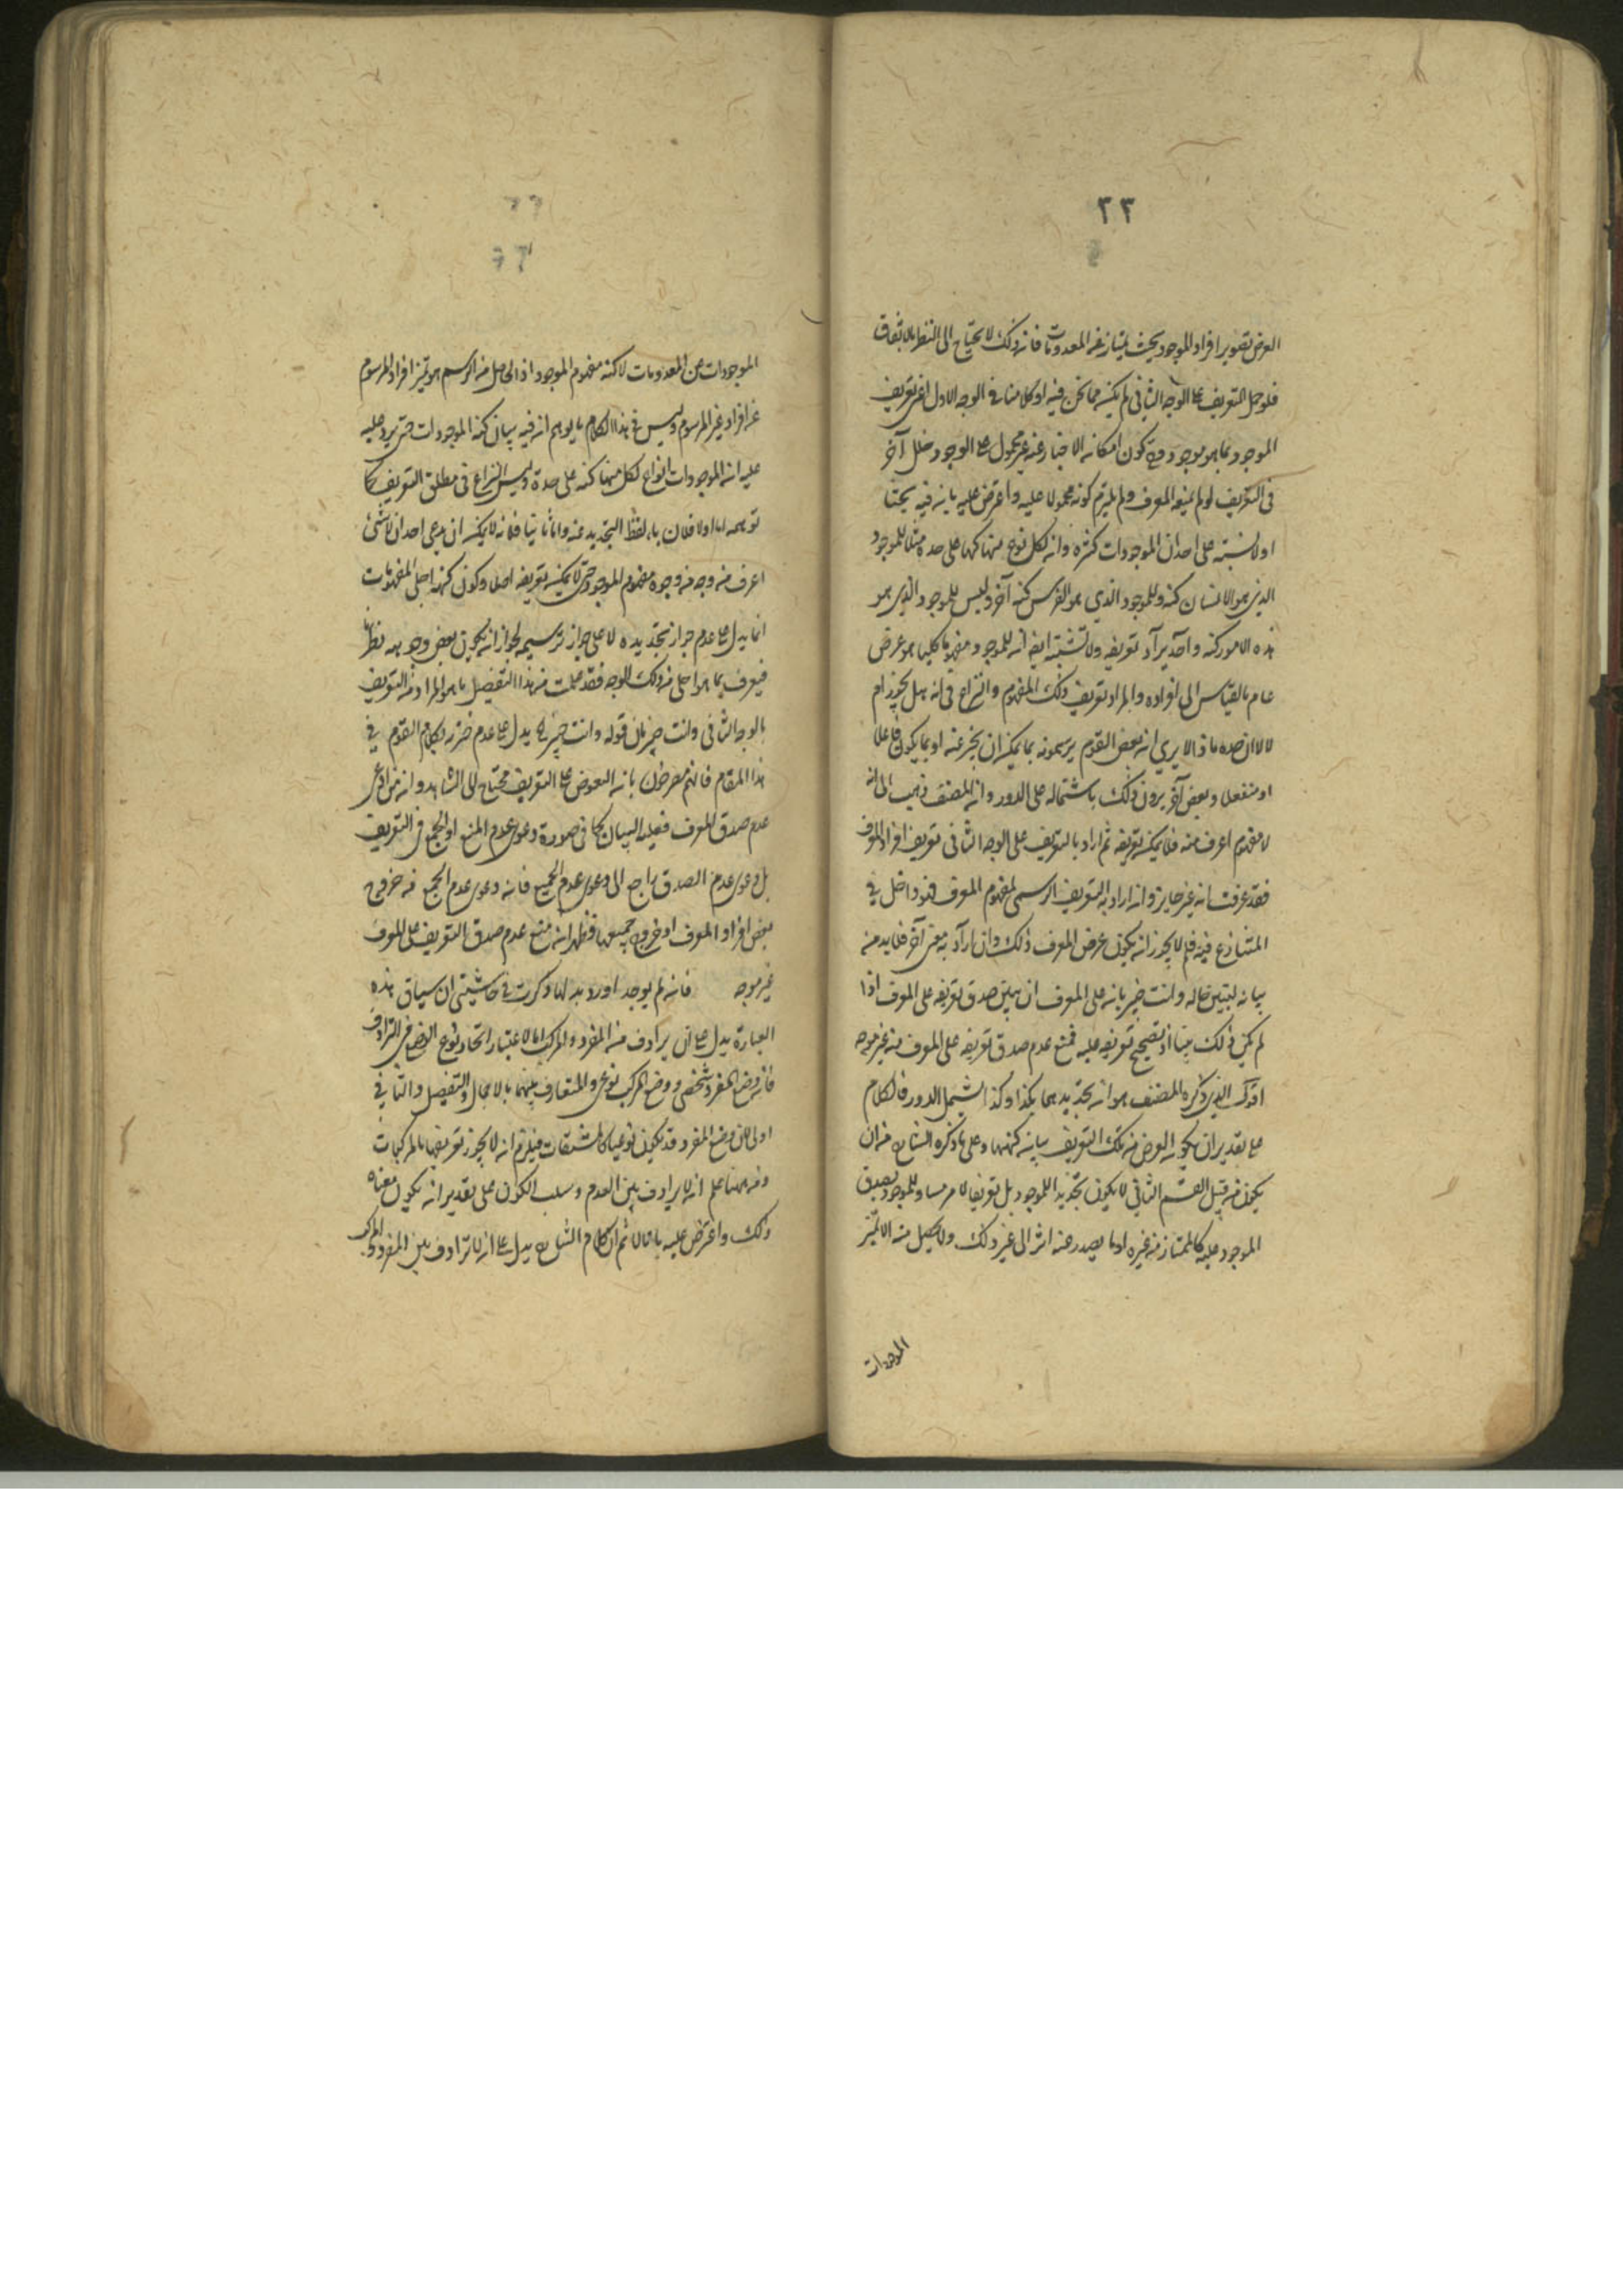 ٢٢
الغرض تصوير افراد الموجود بحيث يمتاز عن المعدومات فان ذلك لا يحتاج الى النظر بالاتفاق
فلو حمل التعريف على الوجه الثاني لم يكن مما نحن فيه او كلامنا في الوجه الاول اعني تعريف
الموجود بما هو موجود وكون امكان الاخبار عنه غير محمول على الوجود خلل آخر
في التعريف لو لم يمنعه المعرف ولم يلتزم كونه محمولا عليه واعترض عليه بانه فيه بحثا
اولا نسبته على احد ان الموجودات كثيرة وان لكل نوع منها كنها على حدة مثلا للموجود
الذي هو الانسان كنه وللموجود الذي هو الفرس كنه آخر وليس للموجود الذي هو
هذه الامور كنه واحد يراد تعريفه ولا تشتبه ايضا ان للموجود مفهوما كليا هو عرض
عام بالقياس الى افراده والمراد تعريف ذلك المفهوم والنزاع في انه هل يجوز ام
لا الا ان صده الا يرى ان بعض القوم يرسمونه بما يمكن ان يخبر عنه او بما يكون فاعلا
او منفعلا وبعض آخر يردون ذلك باشتماله على الدور وان المصنف ذهب الى انه
لا مفهوم اعرف منه فلا يمكن تعريفه ثم اراد بالتعريف على الوجه الثاني تعريف افراد المعرف
فقد عرفت انه غير جايز وان اراد به التعريف الرسمي لمفهوم المعرف فهو داخل في
المتنازع فيه فلم لا يجوز ان يكون غرض المعرف ذلك وان اراد به معنى آخر فلا بد منه
بيانه ليتبين حاله وانت خبير بانه على المعرف ان يبين صدق تعريفه على المعرف اذا
لم يكن ذلك بينا او تصحيح تعريفه عليه فمنع عدم صدق تعريفه على المعرف منه غير موجه
اقول الذي ذكره المصنف هو ان تحديدهما بكذا وكذا يشتمل الدور فالكلام
على تقدير ان يكون الغرض من تلك التعريف بيان كنهها وعلى ما ذكره الشارح من ان
يكون من قبيل القسم الثاني لا يكون تحديدا للموجود بل تعريفا لامر مساو للموجود يصدق
الموجود عليه كالممتاز من غيره او ما يصدر عنه اثر الى غير ذلك ولا يحصل منه الا تميز
الموجودات
الموجودات عن المعدومات لا كنه مفهوم الموجود اذ الحاصل من الرسم هو تميز افراد المرسوم
عن افراد غير المرسوم وليس في هذا الكلام ما يوهم انه فيه بيان كنه الموجودات حتى يرد عليه
عليه ان الموجودات انواع لكل منها كنه على حدة وليس النزاع في مطلق التعريف كما
توهمه اما اولا فلان باء لفظ التحديد عنه واما ثانيا فلانه لا يمكن ان يدعي احد ان لا شيء
اعرف من وجه من وجوه مفهوم الموجود حتى لا يمكن تعريفه اصلا وكون كنهه اجل المفهومات
انما يدل على عدم جواز تحديده لا على جواز ترسيمه لجواز ان يكون بعض وجوهه نظريا
فيعرف بما هو اجلى من ذلك الوجه فقد علمت من هذا التفصيل ما هو المراد من التعريف
بالوجه الثاني وانت خبير بان قوله وانت خبير الخ يدل على عدم خبرته بكلام القوم في
هذا المقام فانهم مصرحون بانه التعرض على التعريف محتاج الى الشاهد وان من ادعى
عدم صدق المعرف فعليه البيان كما في صورة دعوى عدم المنع او الجمع في التعريف
بل دعوى عدم الصدق راجع الى دعوى عدم الجمع فانه دعوى عدم الجمع من خروج
بعض افراد المعرف او خروج جميعها فظهر انه منع عدم صدق التعريف على المعرف
غير موجه فانه لم يوجد اورد به لما ذكرت في حاشيتي ان سياق هذه
العبارة يدل على ان يرادف من المفرد والمركب اما لاعتبار اتحاد نوع الوضع في الترادف
فان وضع المفرد شخصي ووضع المركب نوعي والمتعارف بينهما بالاجمال والتفصيل والثاني
اولى لان وضع المفرد قد يكون نوعيا كالمشتقات فيلزم ان لا يجوز تعريفها بالمركبات
ومن ههنا علم انه لا يرادف بين العدم وسلب الكون على تقدير ان يكون معناه
ذلك واعترض عليه بما قال ثم ان كلام الشارح يدل على انه لا ترادف بين المفرد والمركب